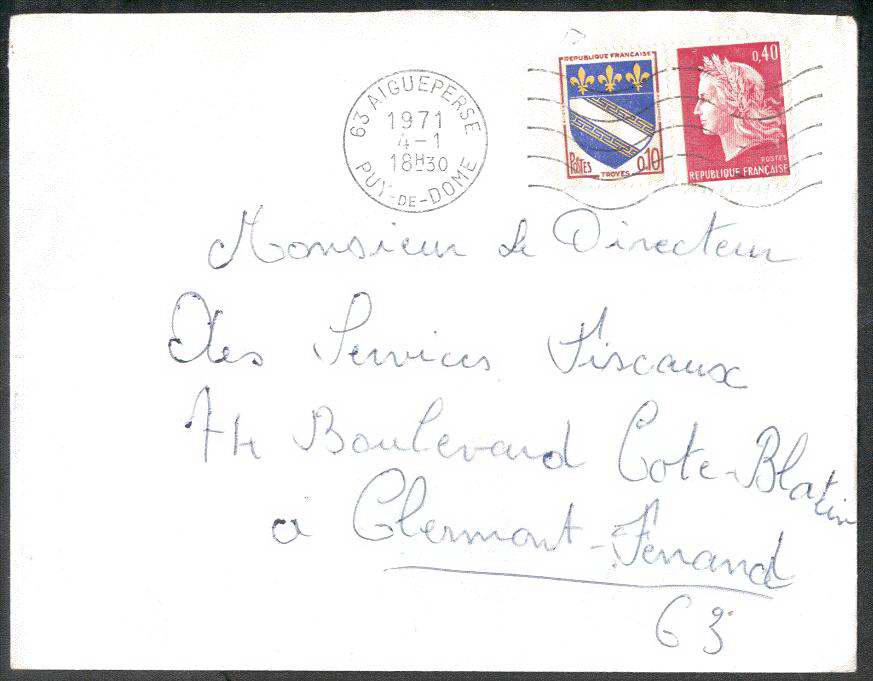 63 AIGUEPERSE
1971
4-1
18H30
PUY-DE-DOME
REPUBLIQUE FRANÇAISE
POSTES
0,10
TROYES
0,40
POSTES
REPUBLIQUE FRANÇAISE
Monsieur Le Directeur
des Services Fiscaux
74 Boulevard Cote-Blatin
à Clermont-Ferrand
63